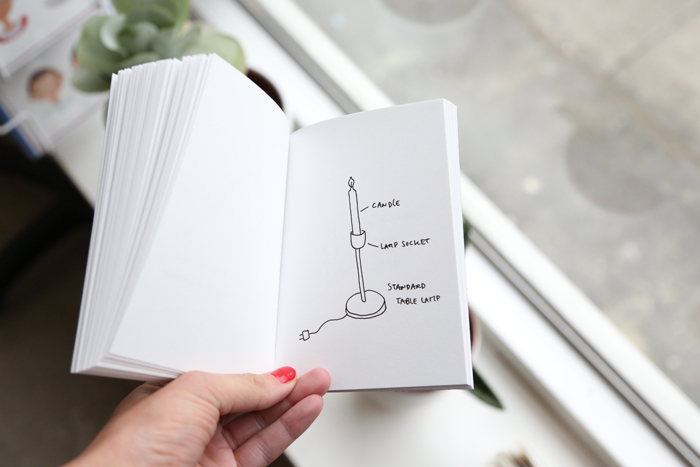 CANDLE
LAMP SOCKET
STANDARD
TABLE LAMP